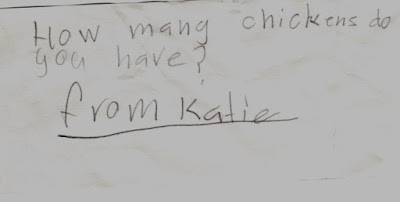 How many chickens do
you have?
from Katie